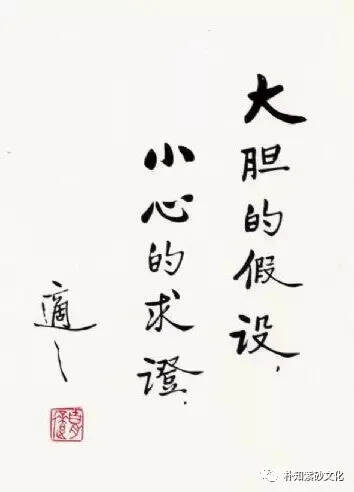 大胆的假设，
小心的求證．
適之
朴知紫砂文化